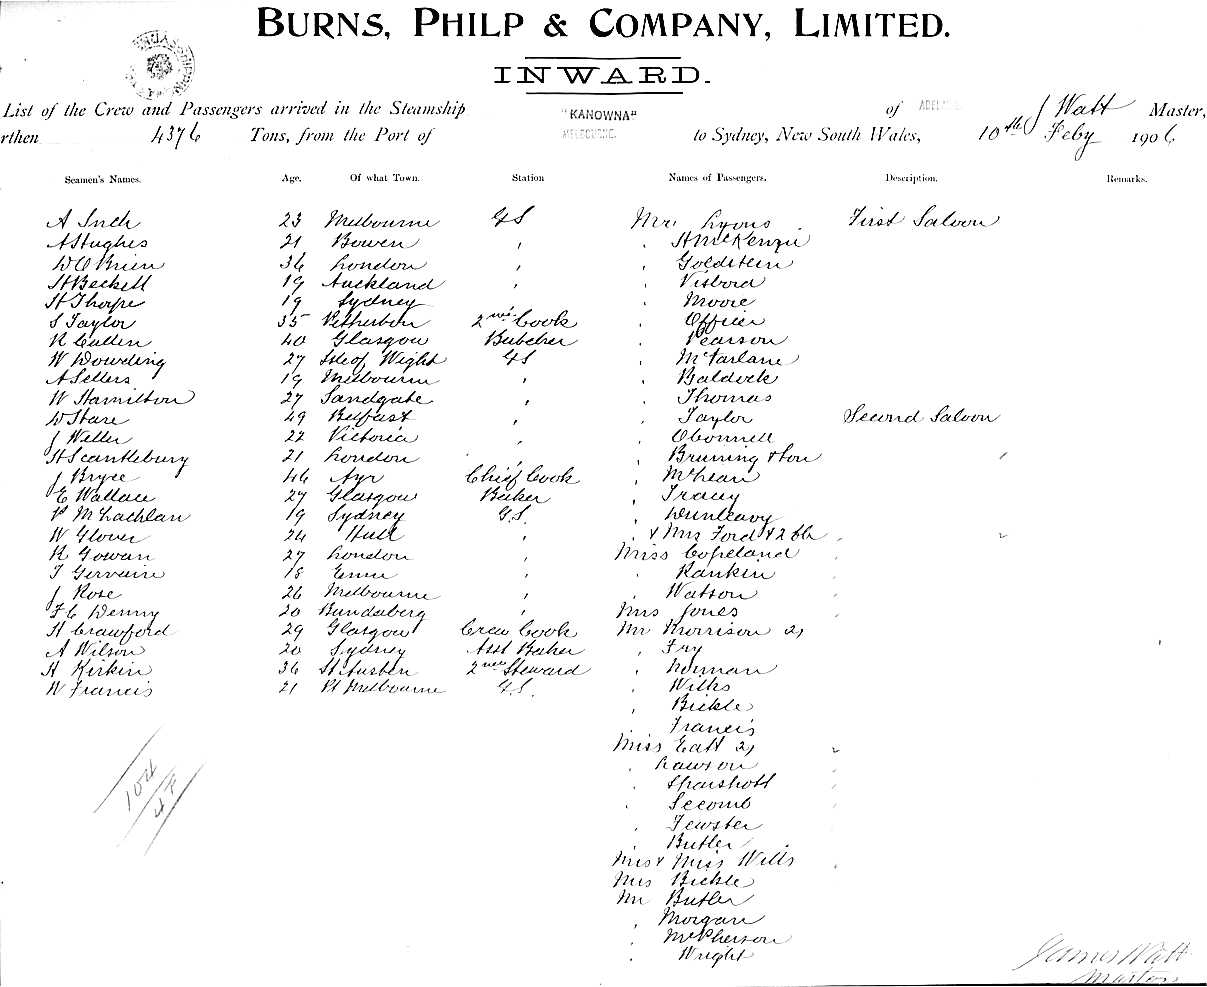 BURNS, PHILP & COMPANY, LIMITED.
INWARD.
List of the Crew and Passengers arrived in the Steamship "KANOWNA" of ADELAIDE J Watt Master,
rthen 4376 Tons, from the Port of MELBOURNE. to Sydney, New South Wales, 10th Feby 1906
Seamen's Names. Age. Of what Town. Station Names of Passengers. Description. Remarks.
A Inch 23 Melbourne GS Mr Lyons First Saloon
A Hughes 21 Bowen , , H McKenzie
W O'Brien 36 London , , Goldstein
H Beckett 19 Auckland , ,
H Thorpe 19 Sydney , Moore
S Taylor 35 2nd Cook , Officer
R Cullen 40 Glasgow Butcher , Pearson
W Dowding 27 Isle of Wight GS , McFarlane
A Sellers 19 Melbourne , , Baldock
W Hamilton 27 Sandgate , , Thomas
W Hare 49 Belfast , , Taylor Second Saloon
J Weller 22 Victoria , , Oconnell
H Scantlebury 21 London , , Bruning & Son
J Bryce 46 Ayr Chief Cook , McLean
E Wallace 27 Glasgow Baker , Tracey
P McLachlan 19 Sydney GS. , Dunleavy
W Glover 24 Hull , , & Mrs Ford & 2 Ch
R Gowan 27 London , Miss Copeland
T Gervaine 18 , , Rankin
J Rose 26 Melbourne , , Watson
F C Denny 20 Bundaberg , Mrs Jones
H Crawford 29 Glasgow Crew Cook Mr Morrison 2)
A Wilson 20 Sydney Asst Baker , Fry
H Kirkin 36 St Austen 2nd Steward , Norman
W Francis 21 Pt Melbourne G.S. , Wilks
, Bickle
Francis
Miss Catt 2)
, Lawson
, Sparshott
, Secomb
, Fewster
, Butler
Mrs & Miss Wills
Mrs Bickle
Mr Butler
, Morgan
, McPherson
, Wright
104
47
James Watt
Master